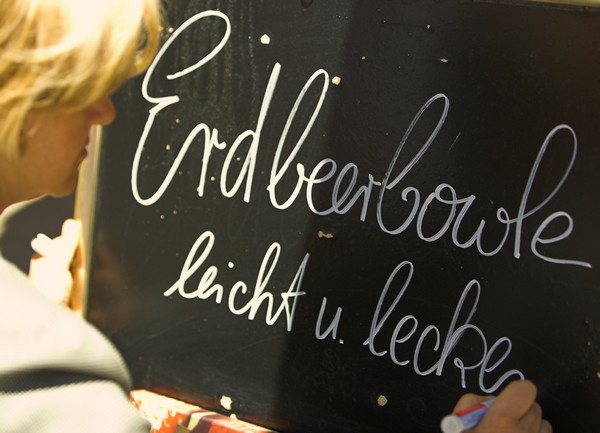 Erdbeerbowle
leicht u. lecker